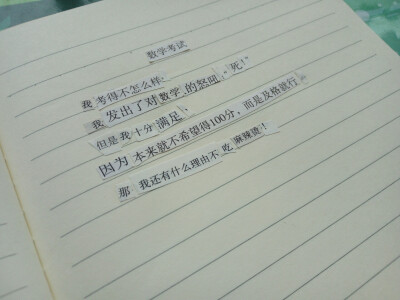 数学考试
我考得不怎么样.
我发出了对数学的怒吼“死!”
但是我十分满足、
因为本来就不希望得100分,而是及格就行
那我还有什么理由不吃麻辣烫!